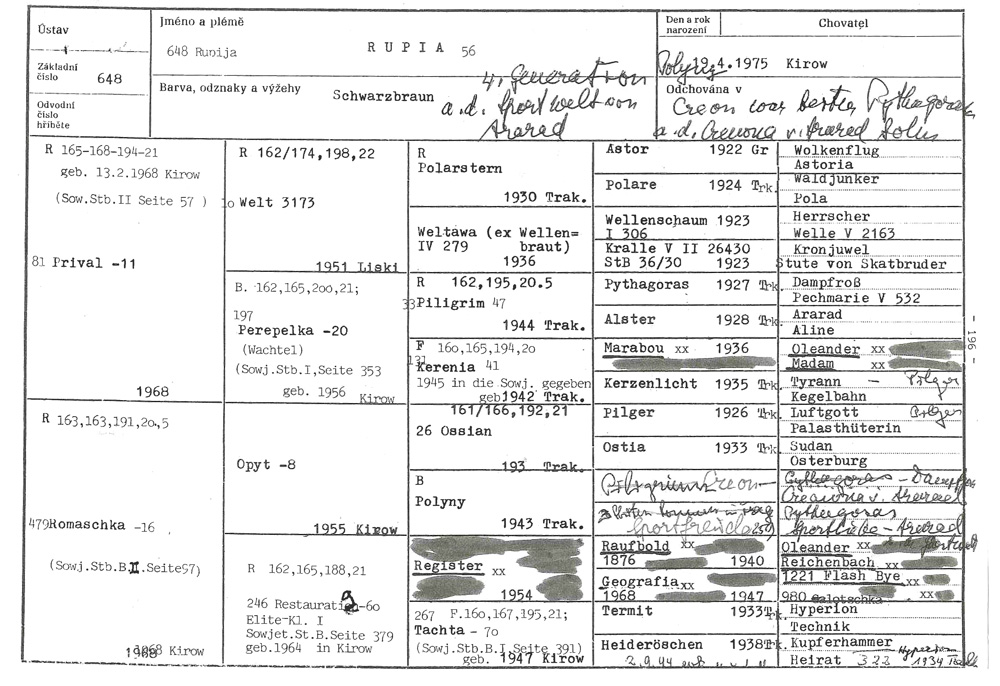 Ústav
Jméno a plémě
Den a rok
narození
Chovatel
648 Runija
R U P I A 56
Základní
číslo 648
19.4.1975 Kirow
Barva, odznaky a výžehy
Schwarzbraun
4. Generation
a.d. Sportwelt von
Ararad
Odchována v
Creon war bester Pythagoras
a.d. Cremona v. Ararad Sohn
Odvodní
číslo
hříběte
R 165-168-194-21
geb. 13.2.1968 Kirow
(Sow.Stb.II Seite 57 )
81 Prival -11
1968
R 163,163,191,20,5
479 Romaschka -16
(Sowj.Stb.B.II.Seite57)
1968 Kirow
R 162/174,198,22
10 Welt 3173
1951 Liski
B. 162,165,200,21;
197
Perepelka -20
(Wachtel)
(Sowj.Stb.I,Seite 353
geb. 1956 Kirow
Opyt -8
1955 Kirow
R 162,165,188,21
246 Restauration-60
Elite-Kl. I
Sowjet.St.B.Seite 379
geb.1964 in Kirow
R
Polarstern
1930 Trak.
Weltawa (ex Wellen=
IV 279 braut)
1936
R 162,195,20.5
33 Piligrim 47
1944 Trak.
F 160,165,194,20
131
Kerenia 41
1945 in die Sowj. gegeben
geb 1942 Trak.
161/166,192,21
26 Ossian
193 Trak.
B
Polyny
1943 Trak.
Register xx
1954
267 F.160,167,195,21;
Tachta - 70
(Sowj.Stb.B.I Seite 391)
geb. 1947 Kirow
Astor 1922 Gr
Polare 1924 Trk.
Wellenschaum 1923
I 306
Kralle V II 26430
StB 36/30 1923
Pythagoras 1927 Trk.
Alster 1928 Trk.
Marabou xx 1936
Kerzenlicht 1935 Trk.
Pilger 1926 Trk.
Ostia 1933 Trk.
Raufbold xx
1876 1940
Geografia xx
1968 1947
Termit 1933 Trk.
Heideröschen 1938 Trk.
Wolkenflug
Astoria
Waldjunker
Pola
Herrscher
Welle V 2163
Kronjuwel
Stute von Skatbruder
Dampfroß
Pechmarie V 532
Ararad
Aline
Oleander xx
Madam xx
Tyrann — Pilger
Kegelbahn
Luftgott Pilger
Palasthüterin
Sudan
Osterburg
Pythagoras
Oleander xx
Reichenbach xx
1221 Flash Bye xx
980 Galotschka xx
Hyperion
Technik
Kupferhammer
Heirat 322 Hyperion
1934 Trak
- 196 -